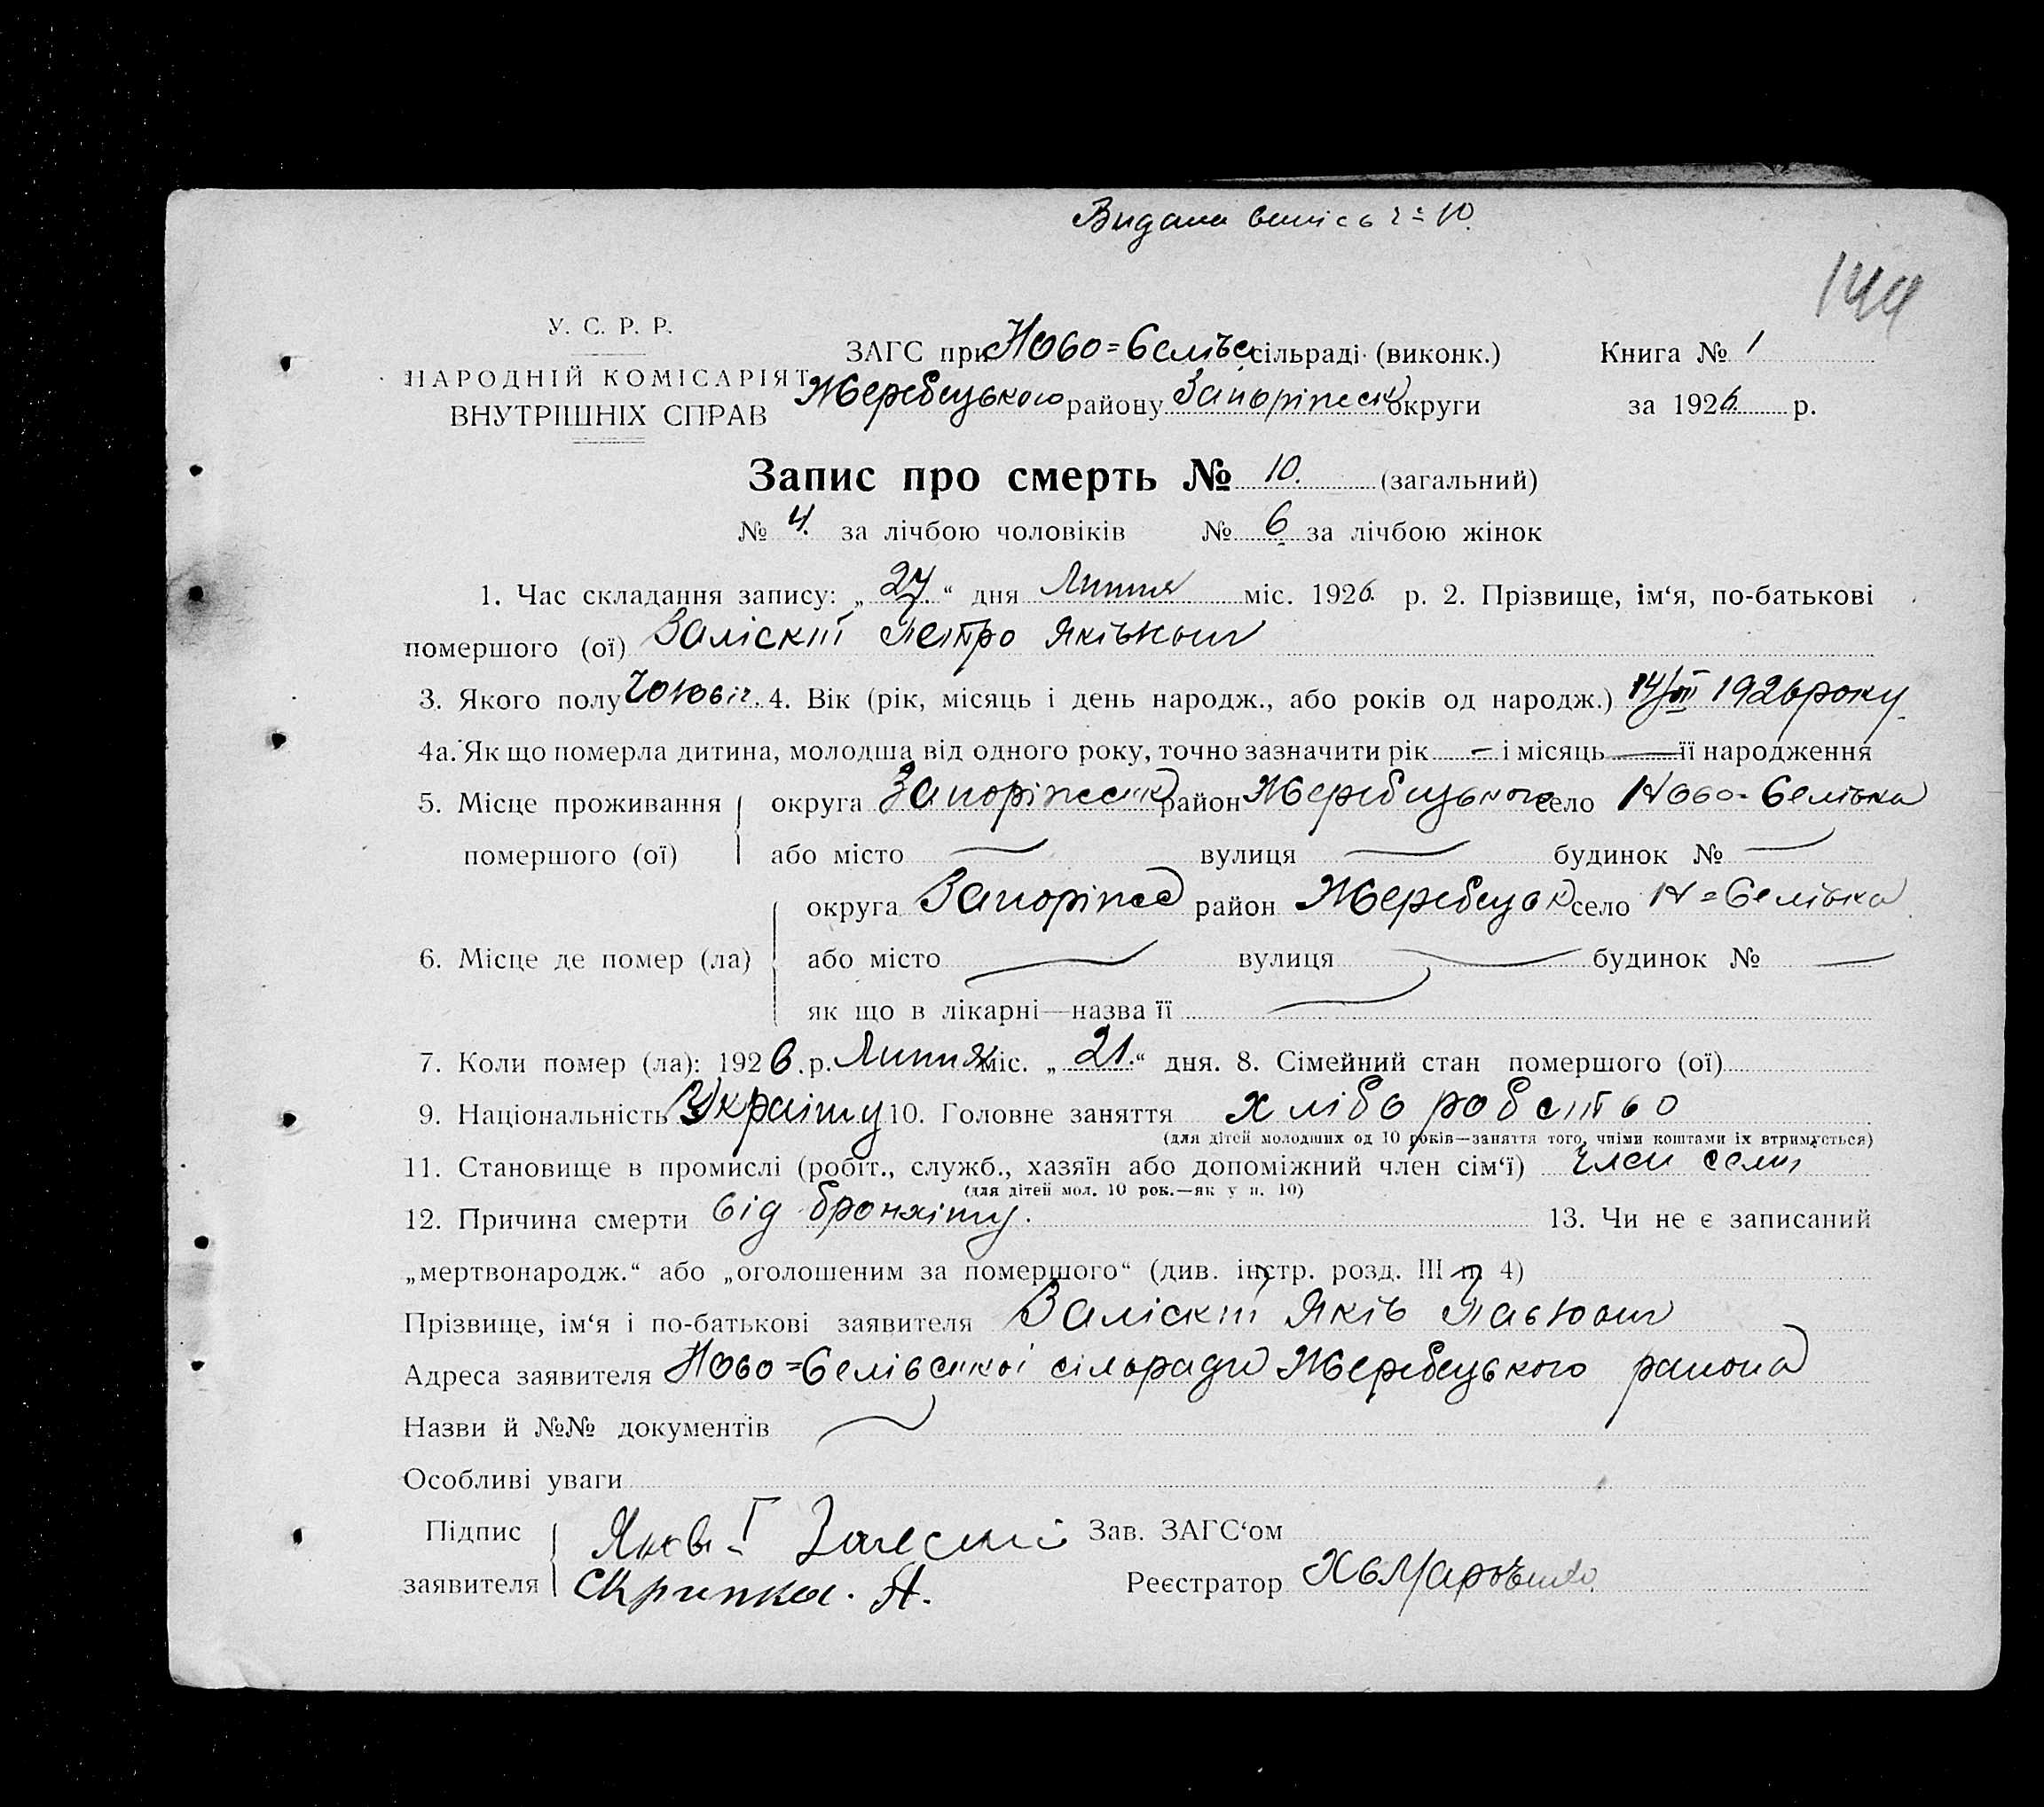 Видана випись ч = 10.
144
У. С. Р. Р.
НАРОДНІЙ КОМІСАРІЯТ
ВНУТРІШНІХ СПРАВ
ЗАГС при Ново=Селівс сільраді (виконк.) Книга № 1
Жеребецького району Запоріжськ округи за 1926 р.
Запис про смерть № 10. (загальний)
№ 4. за лічбою чоловіків № 6 за лічбою жінок
1. Час складання запису: „27“ дня Липня міс. 1926 р. 2. Прізвище, ім‘я, по-батькові
помершого (ої) Заліскій Петро Яківович
3. Якого полу чоловіч. 4. Вік (рік, місяць і день народж., або років од народж.) 14/VII 1926 року.
4а. Як що померла дитина, молодша від одного року, точно зазначити рік — і місяць — її народження
5. Місце проживання округа Запоріжськ район Жеребецького село Ново-Селівка
помершого (ої) або місто — вулиця — будинок № —
округа Запоріж район Жеребецьк село Н=Селівка
6. Місце де помер (ла) або місто — вулиця — будинок № —
як що в лікарні—назва її —
7. Коли помер (ла): 1926.р. Липня міс. „21.“ дня. 8. Сімейний стан помершого (ої)
9. Національність Україну 10. Головне заняття хлібо робство
(для дітей молодших од 10 років—заняття того, чиїми коштами їх втримується)
11. Становище в промислі (робіт., служб., хазяїн або допоміжний член сім‘ї) член семи
(для дітей мол. 10 рок.—як у п. 10)
12. Причина смерти від бронхіту. 13. Чи не є записаний
„мертвонародж.“ або „оголошеним за помершого“ (див. інстр. розд. III п. 4)
Прізвище, ім‘я і по-батькові заявителя Заліскій Яків Павлович
Адреса заявителя Ново=Селівської сільради Жеребецького района
Назви й №№ документів —
Особливі уваги
Підпис Зав. ЗАГС‘ом
заявителя Скрипка. Я. Реєстратор